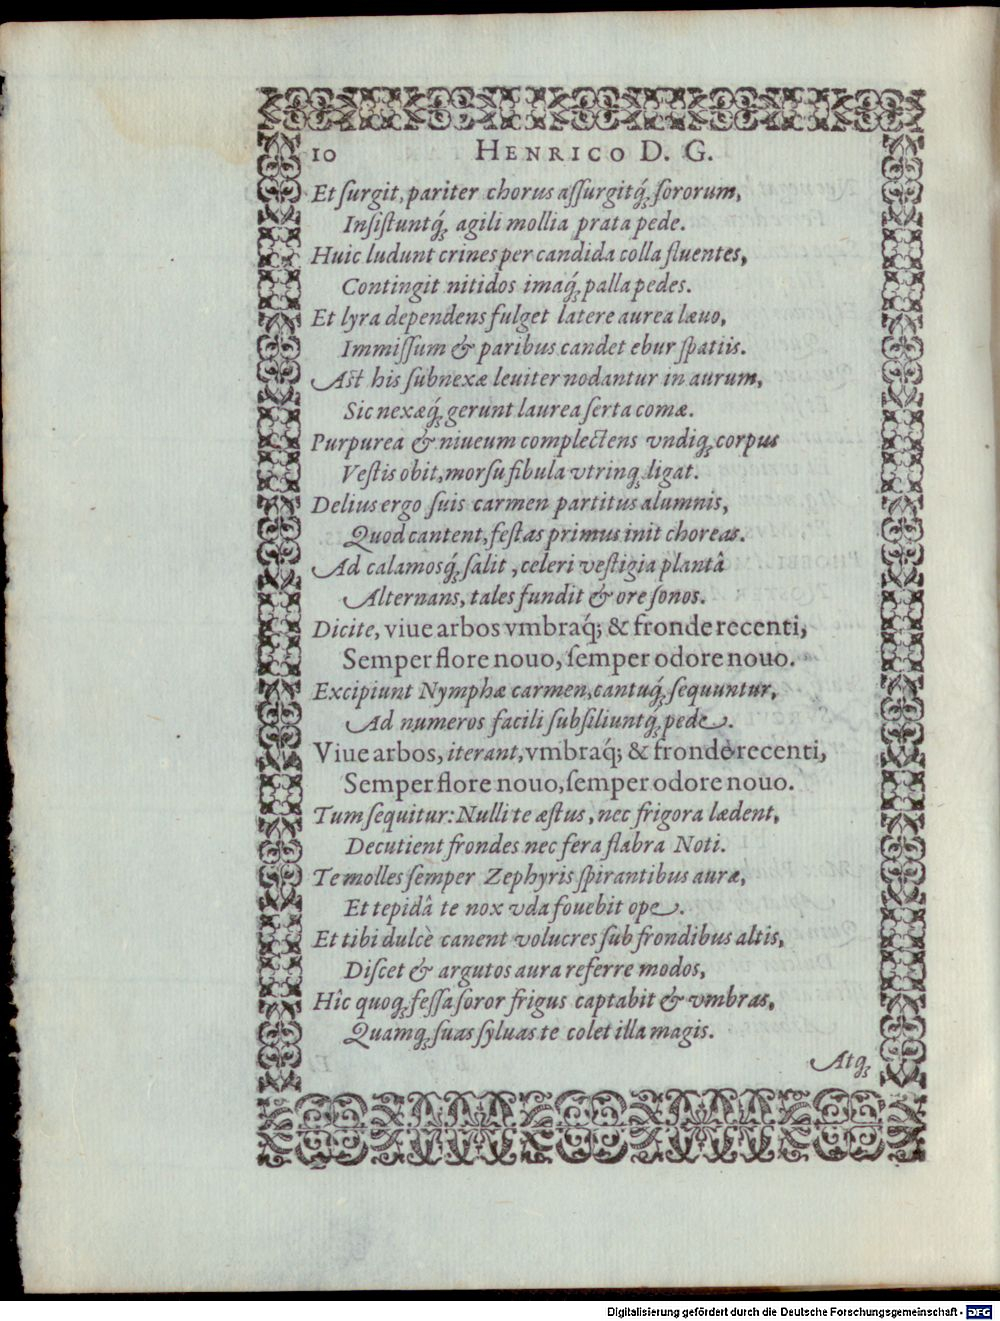 10 HENRICO D. G.
Et ſurgit, pariter chorus aſſurgitq́; ſororum,
Inſiſtuntq́; agili mollia prata pede.
Huic ludunt crines per candida colla fluentes,
Contingit nitidos imaq́; palla pedes.
Et lyra dependens fulget latere aurea læuo,
Immiſſum & paribus candet ebur ſpatiis.
Aſt his ſubnexæ leuiter nodantur in aurum,
Sic nexæq́; gerunt laurea ſerta comæ.
Purpurea & niueum complectens vndiq; corpus
Veſtis obit, morſu fibula vtrinq; ligat.
Delius ergo ſuis carmen partitus alumnis,
Quod cantent, feſtas primus init choreas.
Ad calamosq́; ſalit, celeri veſtigia plantâ
Alternans, tales fundit & ore ſonos.
Dicite, viue arbos vmbraq́; & fronde recenti,
Semper flore nouo, ſemper odore nouo.
Excipiunt Nymphæ carmen, cantuq́; ſequuntur,
Ad numeros facili ſubſiliuntq́; pede.
Viue arbos, iterant, vmbraq́; & fronde recenti,
Semper flore nouo, ſemper odore nouo.
Tum ſequitur: Nulli te æſtus, nec frigora lædent,
Decutient frondes nec fera flabra Noti.
Te molles ſemper Zephyris ſpirantibus auræ,
Et tepidâ te nox vda fouebit ope.
Et tibi dulcè canent volucres ſub frondibus altis,
Diſcet & argutos aura referre modos,
Hîc quoq; feſſa ſoror frigus captabit & vmbras,
Quamq; ſuas ſyluas te colet illa magis.
Atq;
Digitalisierung gefördert durch die Deutsche Forschungsgemeinschaft - DFG